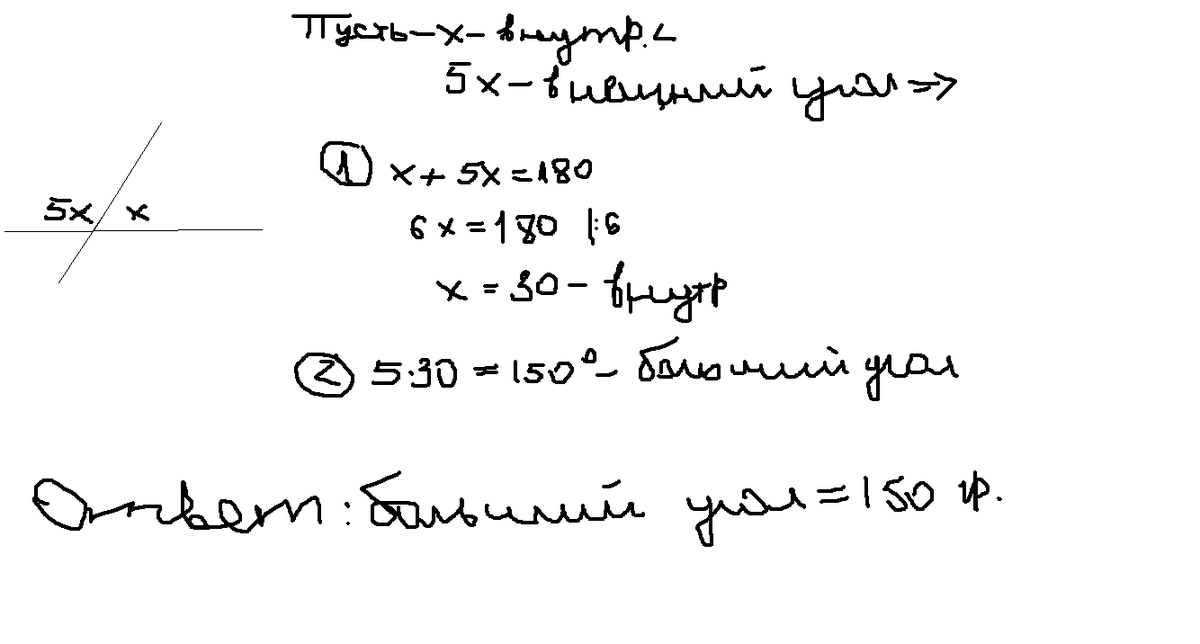 Пусть-x-внутр.<
5x-внешний угол=>
5x x
1 x+5x=180
6x=180 |:6
x=30-внутр
2 5·30=150°-больший угол
Ответ:больший угол=150 гр.